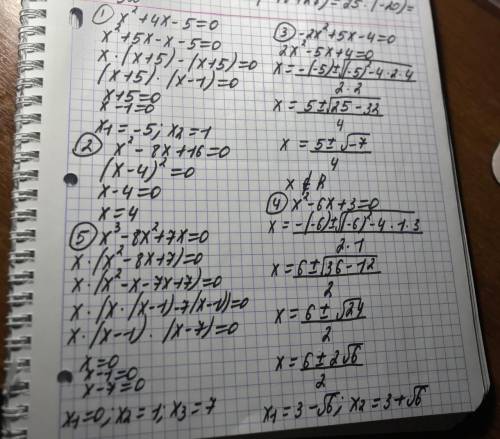 ① x²+4x-5=0
x²+5x-x-5=0
x·(x+5)-(x+5)=0
(x+5)·(x-1)=0
x+5=0
x-1=0
x₁=-5; x₂=1
② x²-8x+16=0
(x-4)²=0
x-4=0
x=4
⑤ x³-8x²+7x=0
x·(x²-8x+7)=0
x·(x²-x-7x+7)=0
x·(x·(x-1)-7(x-1))=0
x·(x-1)·(x-7)=0
x=0
x-1=0
x-7=0
x₁=0; x₂=1; x₃=7
③ -2x²+5x-4=0
2x²-5x+4=0
x=-(-5)±√(-5)²-4·2·4
2·2
x=5±√25-32
4
x=5±√-7
4
x∉R
④ x²-6x+3=0
x=-(-6)±√(-6)²-4·1·3
2·1
x=6±√36-12
2
x=6±√24
2
x=6±2√6
2
x₁=3-√6; x₂=3+√6